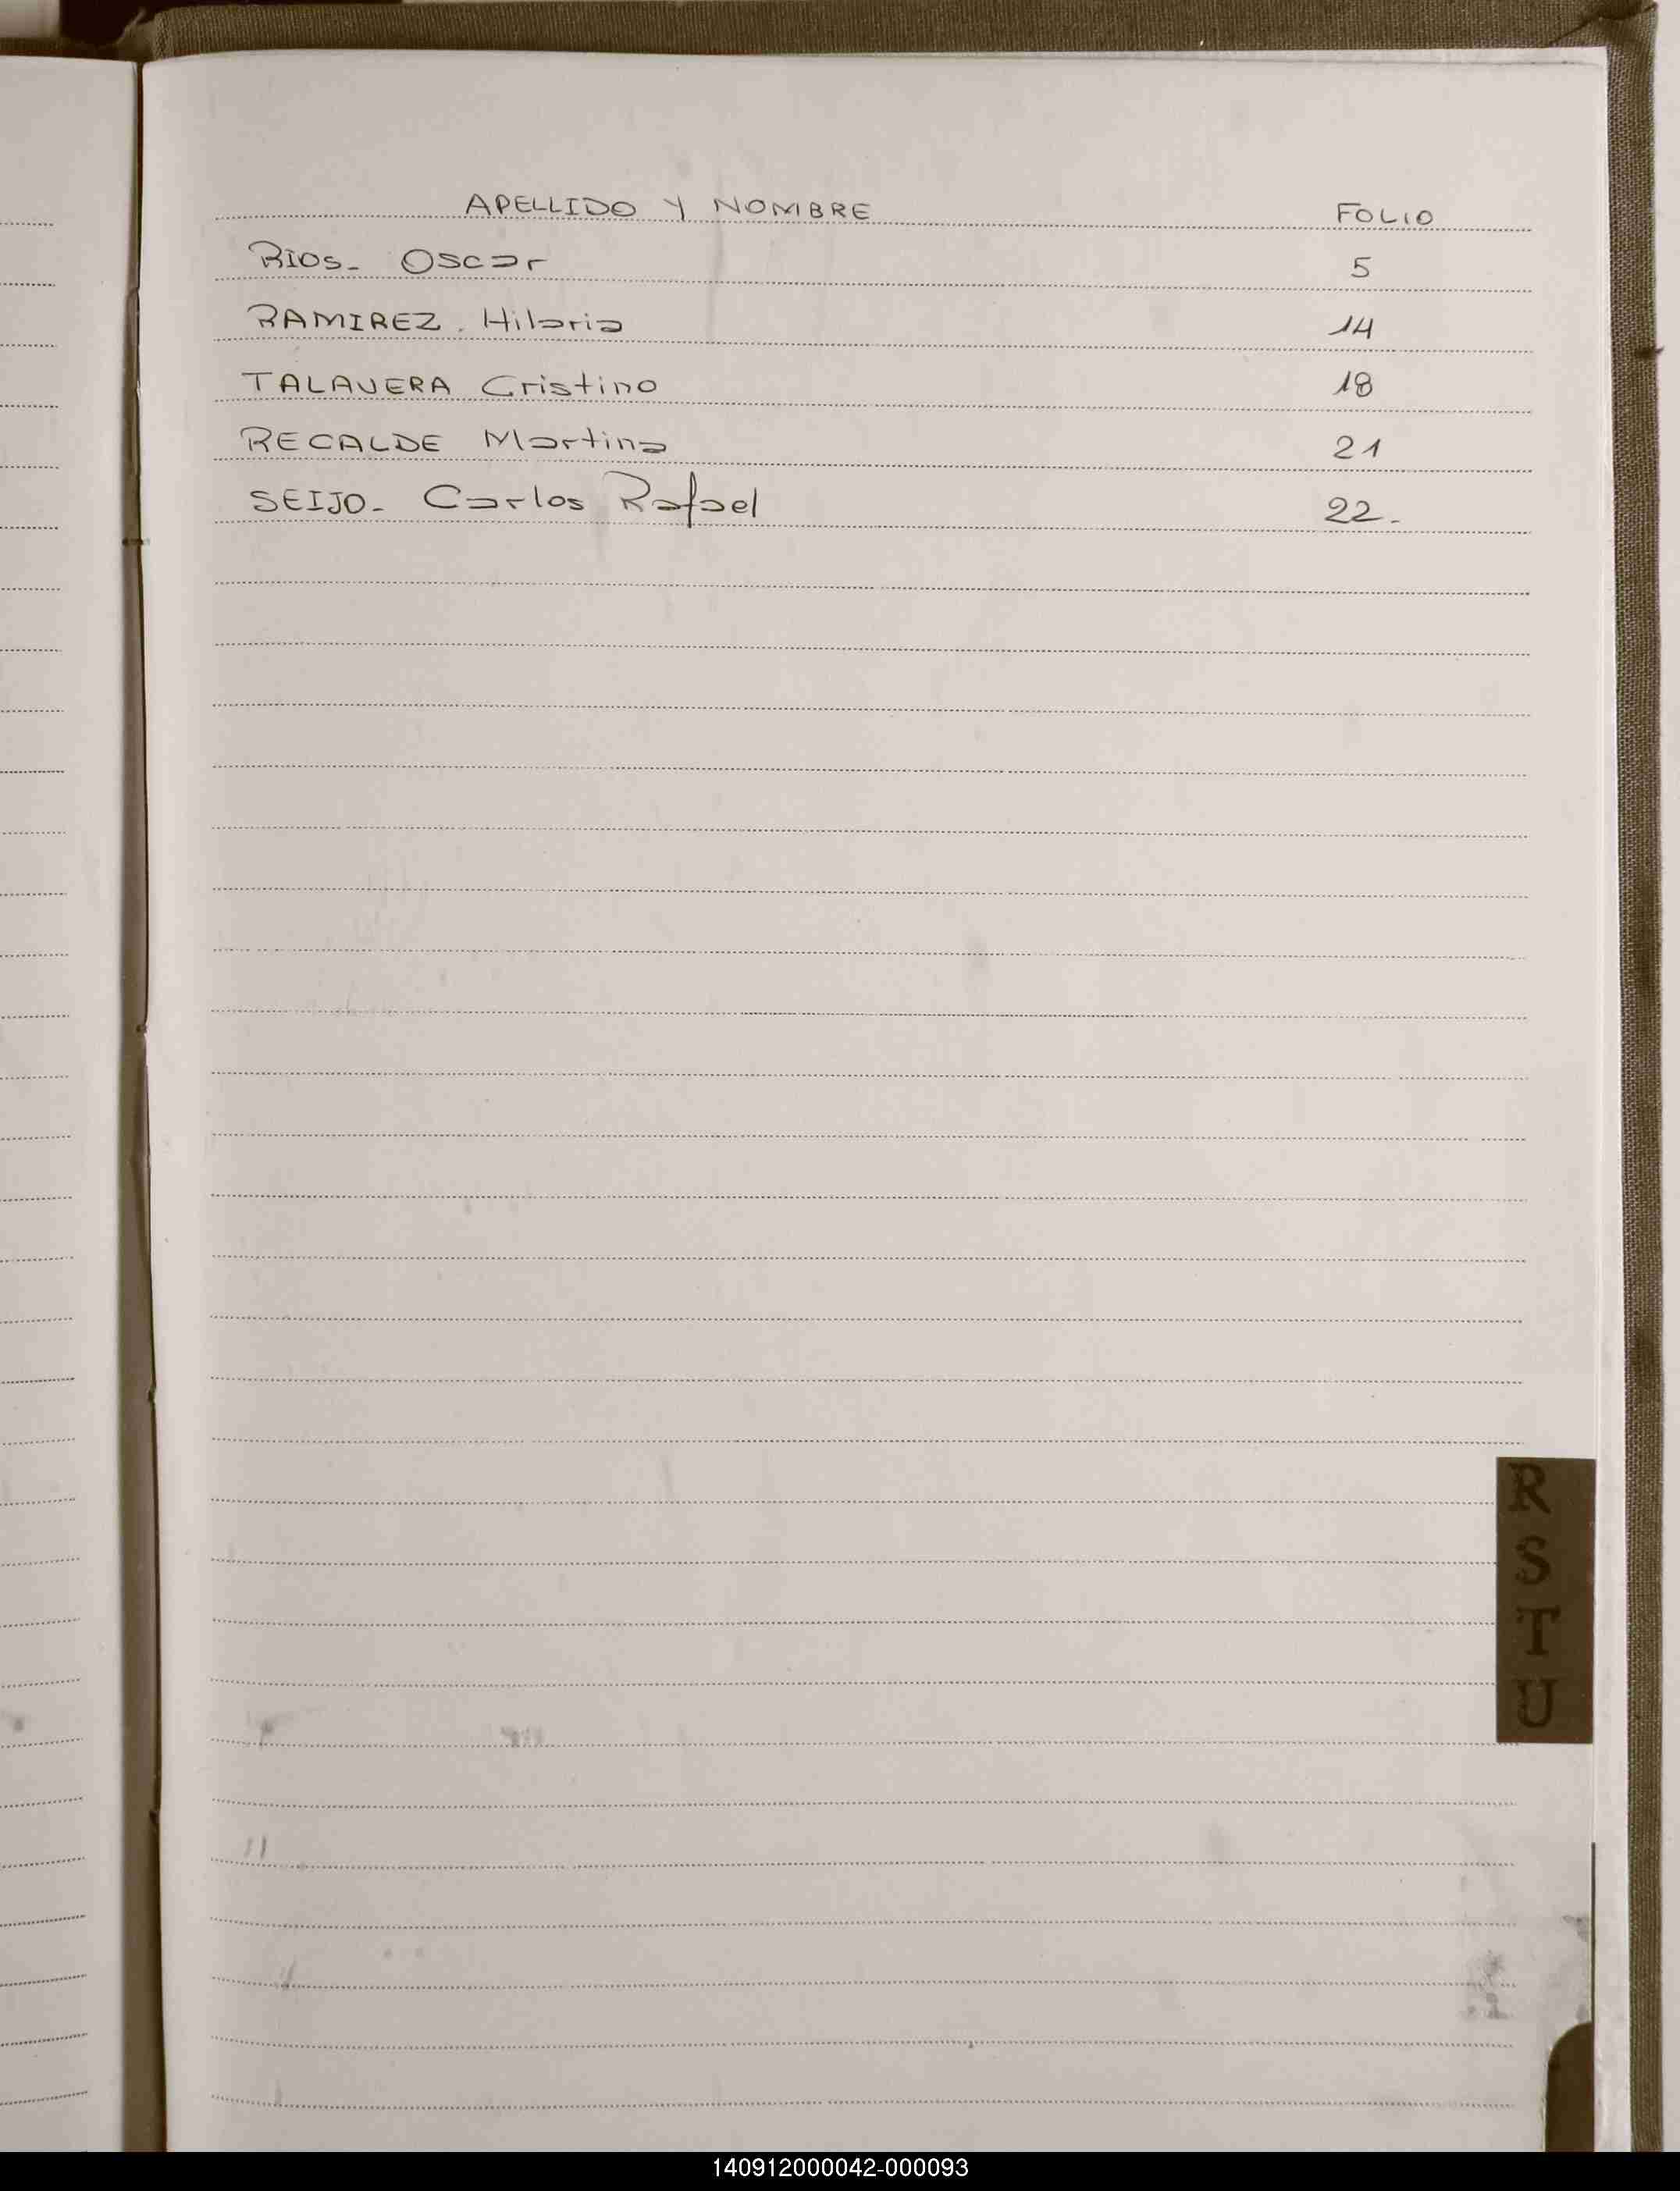 APELLIDO Y NOMBRE FOLIO
RIOS- Oscar 5
RAMIREZ. Hilaria 14
TALAVERA Cristino 18
RECALDE Martina 21
SEIJO- Carlos Rafael 22-
R
S
T
U
140912000042-000093